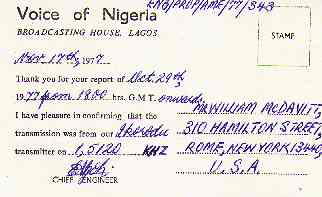 ENG/PROP/AME/77/343
Voice of Nigeria
BROADCASTING HOUSE, LAGOS
STAMP
Nov. 17th, 1977
Thank you for your report of Oct. 29th,
1977 from 1800 hrs. G.M.T. onward.
I have pleasure in confirming that the
transmission was from our Ikorodu
transmitter on 15120 KHZ
CHIEF ENGINEER
MR WILLIAM McDAVITT,
310 HAMILTON STREET,
ROME, NEW YORK 13440,
U.S.A.